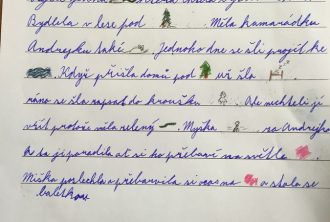 Bydlela v lese pod . Měla kamarádku
Andrejku také . Jednoho dne se šli projít ke
. Když přišla domů pod už šla .
ráno se šla zapsat do kroužku . Ale nechtěli jí
vzít protože měla zelený . Myška za Andrejkou
a ta jí poradila ať si ho přebarví na světle .
Miška poslechla a přebarvila si ocas na a stala se
baletkou